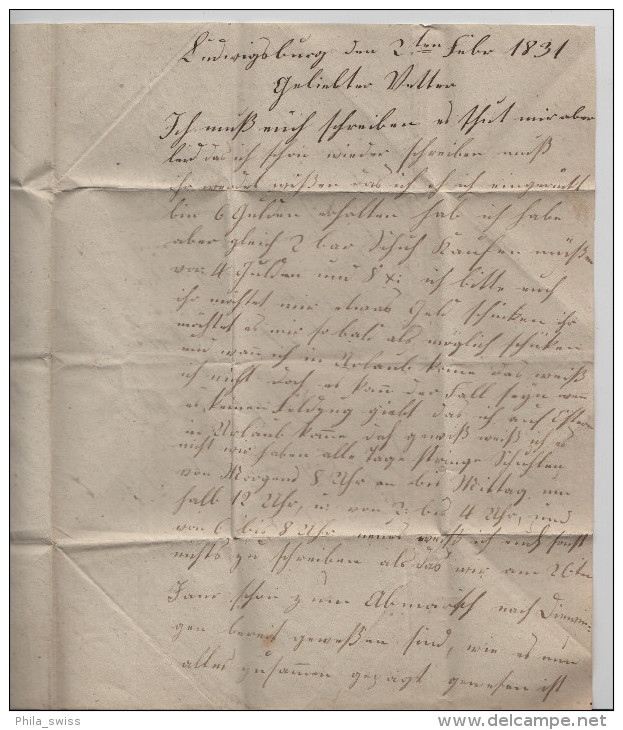 Ludwigsburg den 2ten Febr 1831
Geliebter Vetter
Ich muß euch schreiben es thut mir aber
leid das ich schon wieder schreiben muß
ihr werdet wißen das ich eh ich eingerückt
bin 6 Gulden erhalten hab ich habe
aber gleich 2 bar Schuh kaufen müßen
vor 4 Gulden und 8 x: ich bitte euch
ihr möchtet mir etwas Geld schicken ihr
möchtet es mir so bald als möglich schicken
und wann ich in Urlaub kome das weiß
ich nicht doch es kann der Fall seyn wen
es keinen Feldzug giebt das ich auf Ostern
in Urlaub kome des gewiß weiß ich es
nicht wir haben alle Tage strenge Schuhlen
von Morgens 8 Uhr an bis Mittag um
halb 12 Uhr, u: von 2 bis 4 Uhr, und
von 6 bis 8 Uhr neues weiß ich euch sonst
nichts zu schreiben als das wir am 26ten
Janr schon zum Abmarsch nach
gen bereit geweßen sind, wie es nun
alles zusammen gesagt gewesen ist
Phila_swiss
www.delcampe.net